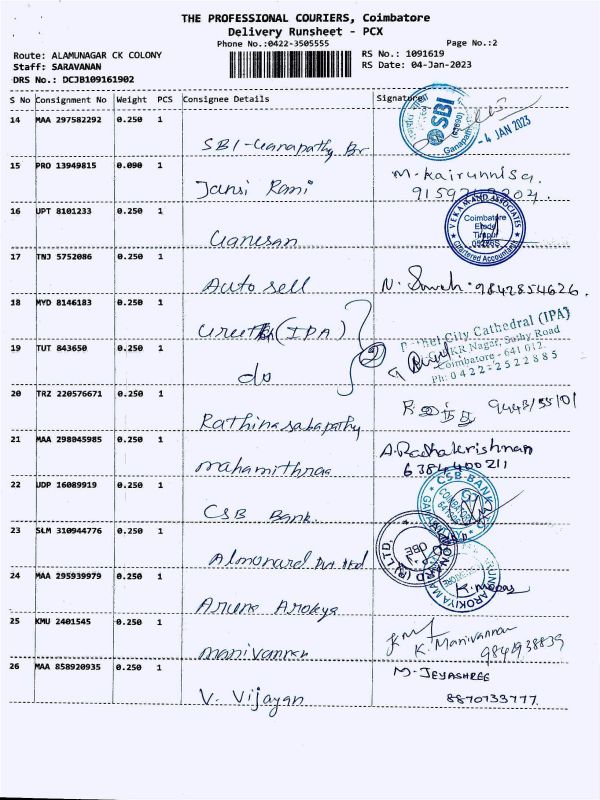 THE PROFESSIONAL COURIERS, Coimbatore
Delivery Runsheet - PCX
Phone No.:0422-3505555
Page No.:2
Route: ALAMUNAGAR CK COLONY
RS No.: 1091619
Staff: SARAVANAN
RS Date: 04-Jan-2023
DRS No.: DCJB109161902
S No Consignment No Weight PCS Consignee Details Signature
14 MAA 297582292 0.250 1
SBI
Ganapathy
- 4 JAN 2023
SBI-Ganapathy Br
15 PRO 13949815 0.090 1
M. Kairunnisa.
Jansi Rani
16 UPT 8101233 0.250 1
VEKAM AND ASSOCIATES
Coimbatore
Erode
Tirupur
Chartered Accountants
Ganesan
17 TNJ 5752086 0.250 1
Auto sell
9842854626.
18 MYD 8146183 0.250 1
(IPA)
City Cathedral (IPA)
KR Nagar, Sathy Road
Coimbatore - 641 012.
Ph: 0422-2522885
19 TUT 843650 0.250 1
2
do
20 TRZ 220576671 0.250 1
Rathinasabapathy
21 MAA 298045985 0.250 1
A. Radhakrishnan
6384400211
mahamithraa
22 UDP 16089919 0.250 1
CSB-BANK
CSB Bank.
23 SLM 310944776 0.250 1
ALMONARD (P) LTD.
CBE
Almonard Pvt Ltd
24 MAA 295939979 0.250 1
ARUNE AROKIYA MA
Arune Arokya
25 KMU 2401545 0.250 1
K. Manivannan
manivannan
26 MAA 858920935 0.250 1
M. JEYASHREE
8870733777.
V. Vijayan